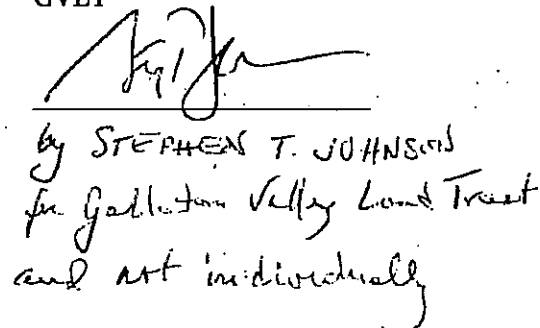 GVLT
by STEPHEN T. JOHNSON
for Gallatin Valley Land Trust
and not individually